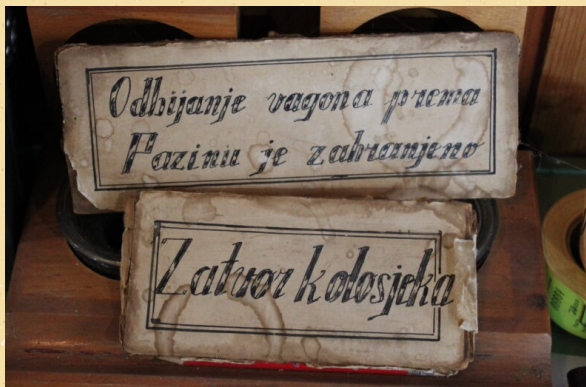 Odbijanje vagona prema
Pazinu je zabranjeno
Zatvor kolosjeka